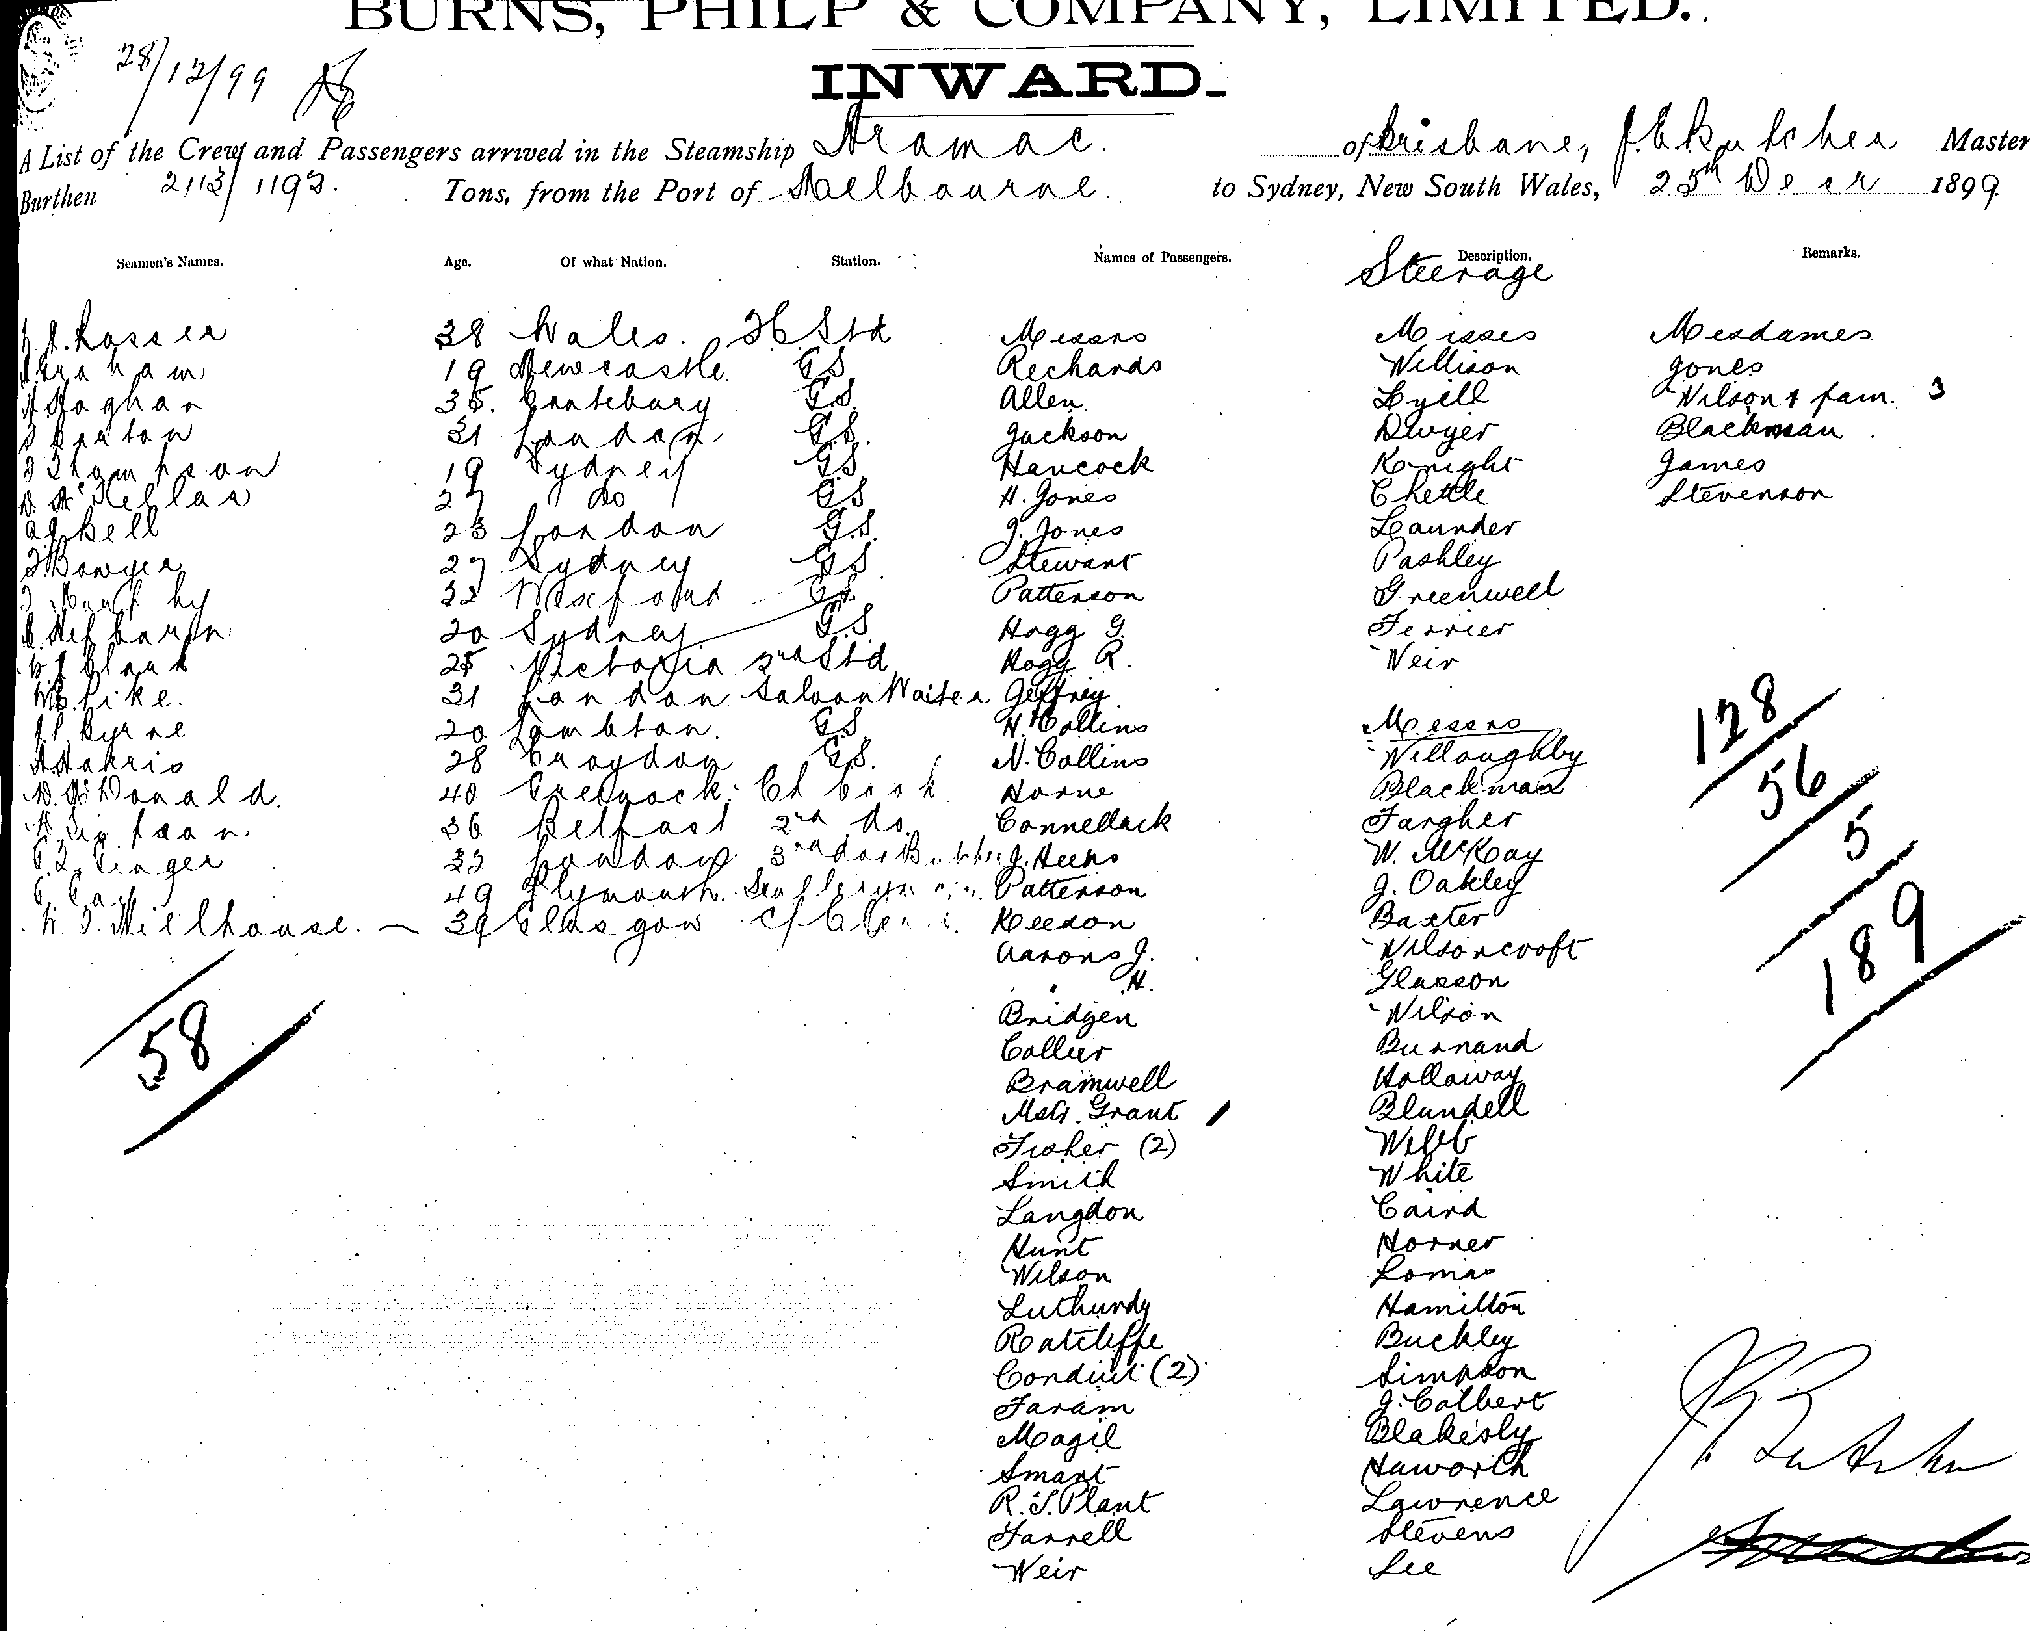 BURNS, PHILP & COMPANY, LIMITED.
28/12/99
INWARD.
A List of the Crew and Passengers arrived in the Steamship Aramac. of Brisbane, J. E. Butcher Master
Burthen 2113/1193. Tons, from the Port of Melbourne. to Sydney, New South Wales, 25th Decr 1899.
Seamen's Names. Age. Of what Nation. Station. Names of Passengers. Description. Remarks.
Steerage
Rosser 38 Wales. Std Messrs Misses Mesdames
Graham 19 Newcastle. G.S. Rechards Willison Jones
35. G.S. Allen. Lyell Wilson & fam. 3
31 London G.S. Jackson Dwyer Blackman
Thompson 19 Sydney G.S. Hancock Knight James
McKellar 27 Do G.S. H. Jones Chettle Stevenson
Bell 23 London G.S. J. Jones Launder
Bowyer 27 Sydney G.S. Stewart Pashley
Murphy 32 Wexford G.S. Patterson Greenwell
20 Sydney G.S. Hogg G. Ferrier
Clark 25 Victoria 2nd Std Hogg R. Weir
Pike. 31 London Saloon Waiter Geffrey
Byrne 20 Lambton. G.S. H. Collins Messrs
Harris 28 Croydon G.S. N. Collins Willoughby
McDonald. 40 Greenock. Ch Cook Horne Blackman
36 Belfast 2nd do. Connellack Fargher
33 London 3rd do & Butcher J. Heeps W. McKay
49 Plymouth. Patterson J. Oakley
Millhouse. 39 Glasgow Keeson Baxter
Aarons J. Wilsoncroft
" H. Glasson
Bridgen Wilson
Collier Burnand
Bramwell Hollaway
Mstr. Grant Blundell
Fisher (2) Webb
Smith White
Langdon Caird
Hunt Horner
Wilson Lomas
Luthurdy Hamilton
Ratcliffe Buckley
Conduit (2) Simpson
Faram J. Colbert
Magil Blakesly
Smart Haworth
R. S. Plant Lawrence
Farrell Stevens
Weir Lee
58
128
56
5
189
J E Butcher